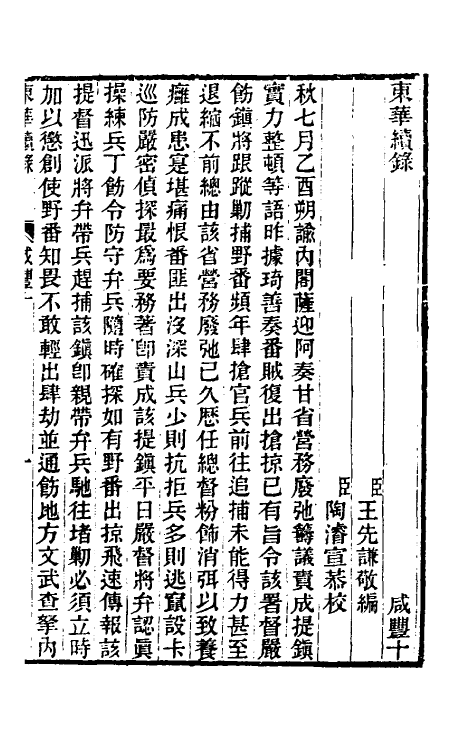 東華續錄 咸豐十
臣王先謙敬編
臣陶濬宣恭校
秋七月乙酉朔諭內閣薩迎阿奏甘省營務廢弛籌議責成提鎭
實力整頓等語昨據琦善奏番賊復出搶掠已有旨令該署督嚴
飭鎭將跟蹤勦捕野番頻年肆搶官兵前往追捕未能得力甚至
退縮不前總由該省營務廢弛已久歷任總督粉飾消弭以致養
癰成患寔堪痛恨番匪出沒深山兵少則抗拒兵多則逃竄設卡
巡防嚴密偵探最爲要務著卽責成該提鎭平日嚴督將弁認眞
操練兵丁飭令防守弁兵隨時確探如有野番出掠飛速傳報該
提督迅派將弁帶兵趕捕該鎭卽親帶弁兵馳往堵勦必須立時
加以懲創使野番知畏不敢輕出肆劫並通飭地方文武查拏內
東華續錄 咸豐十 一